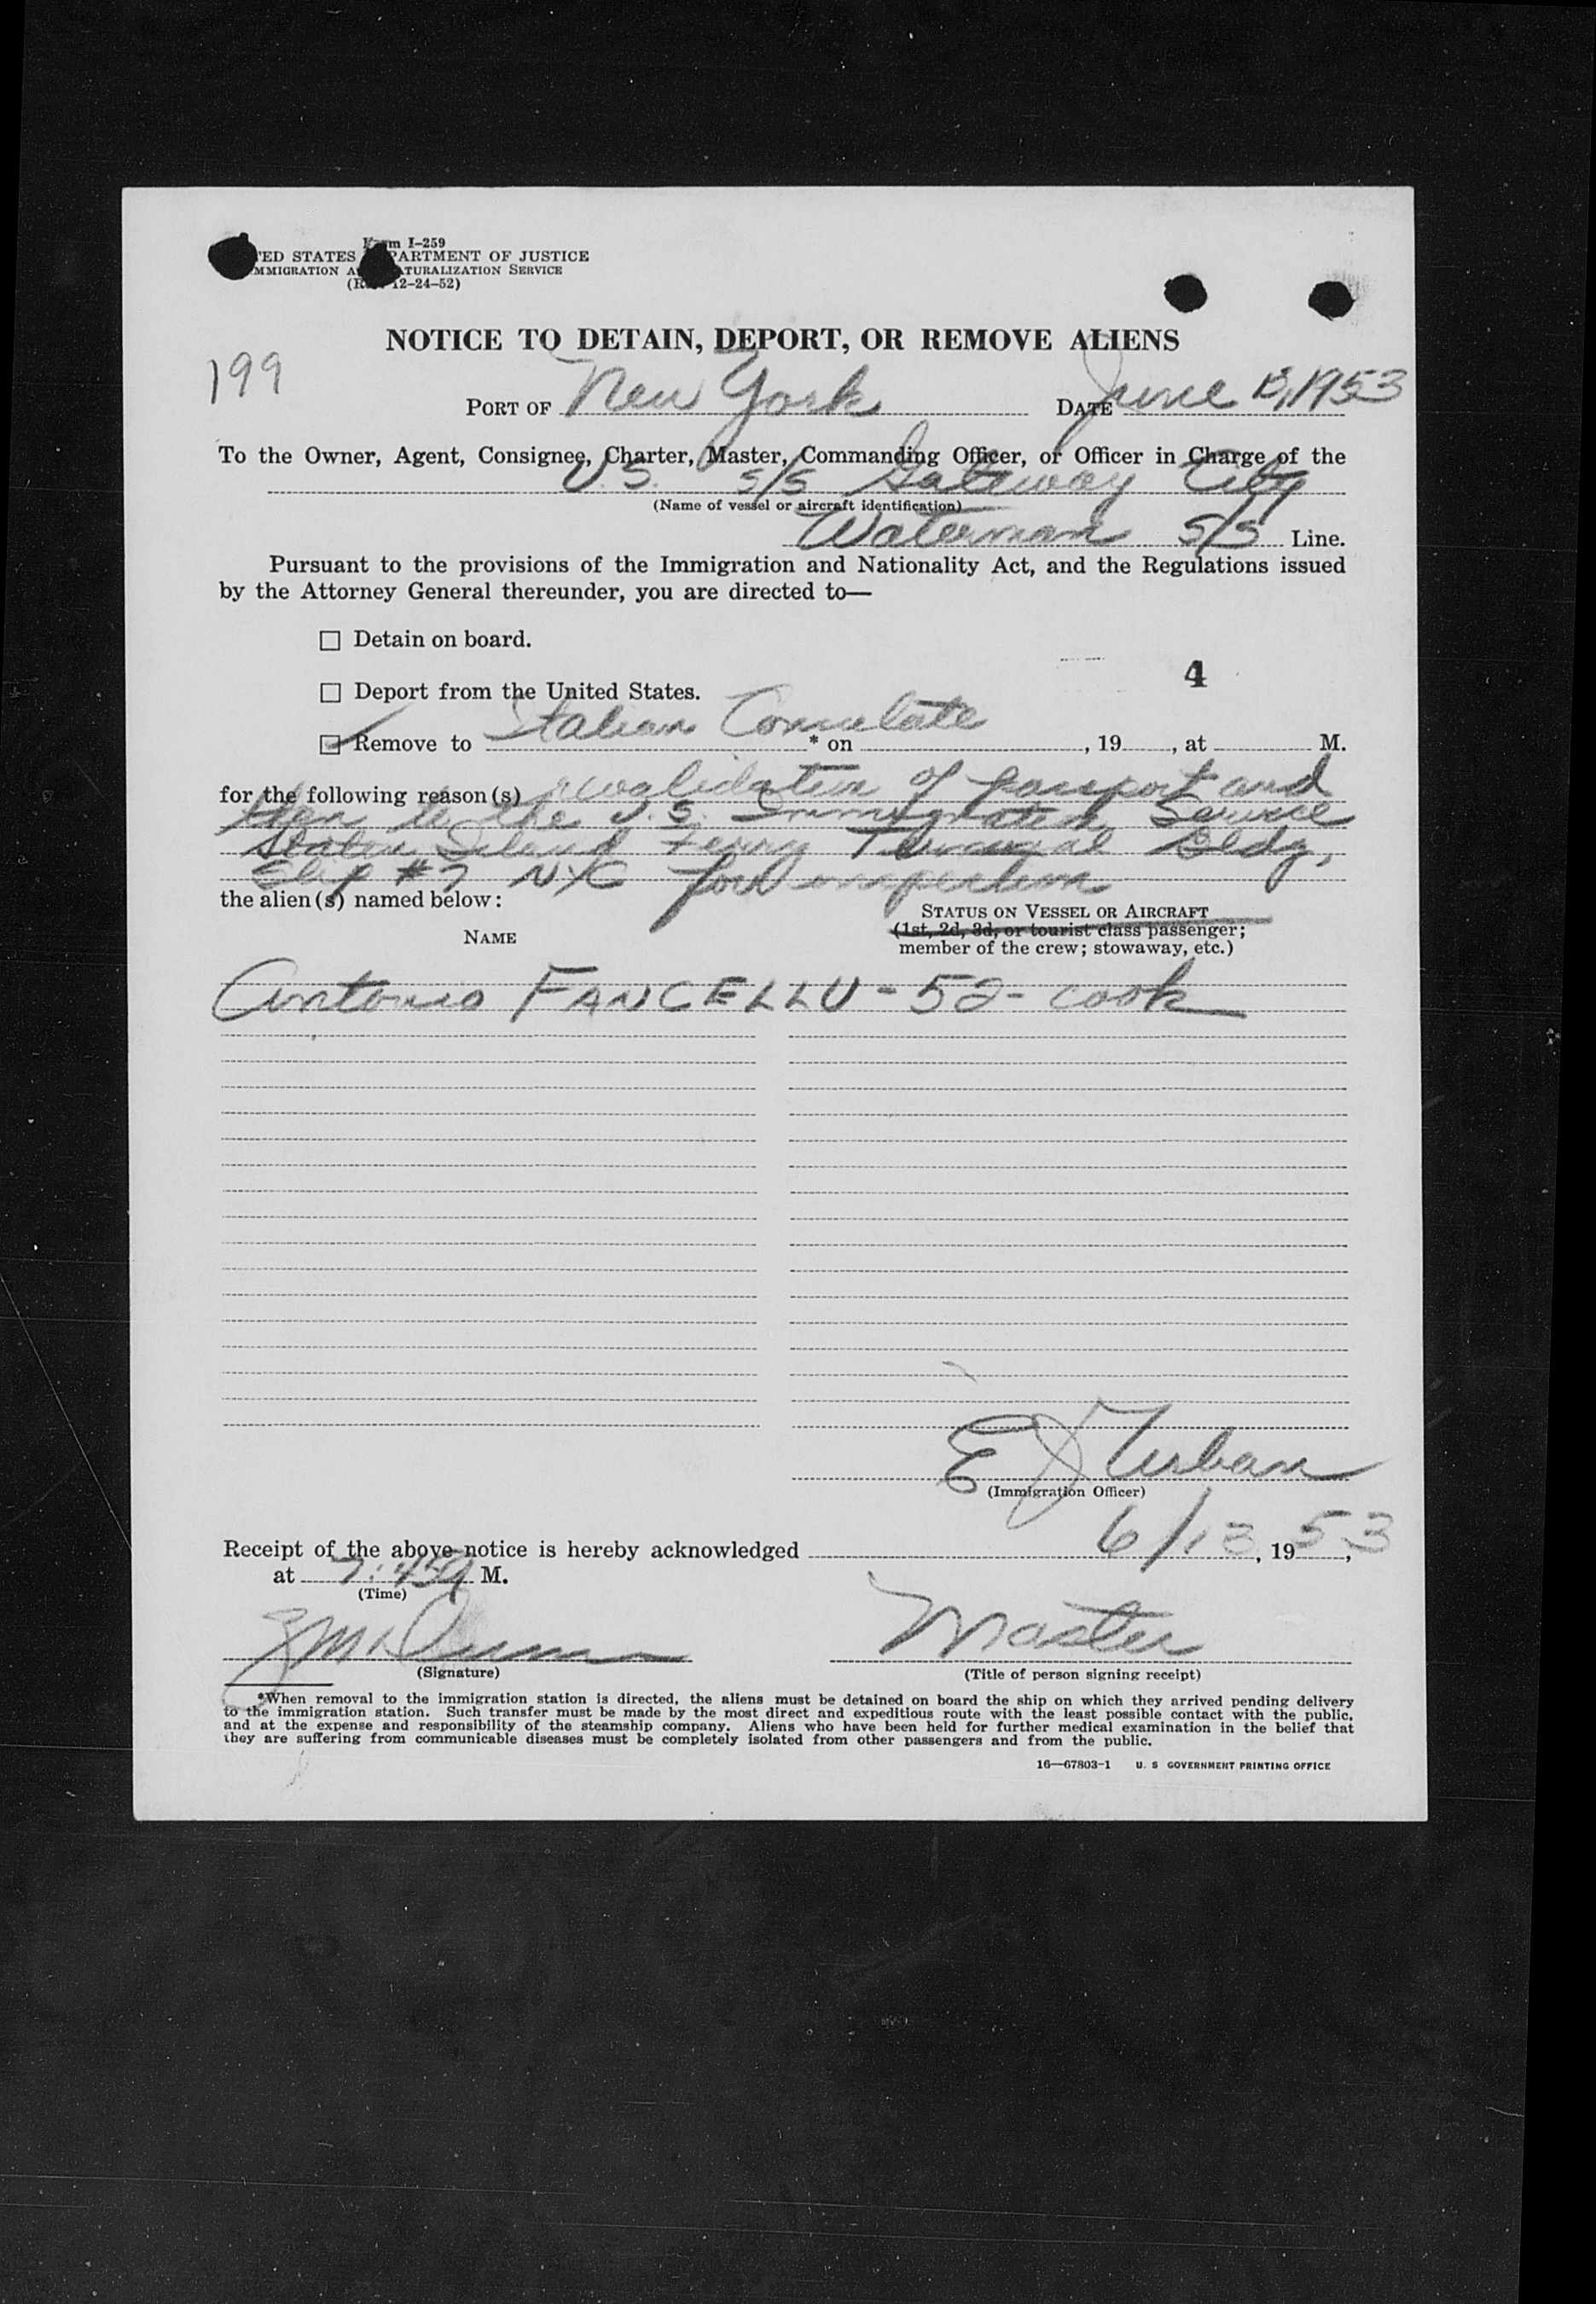 Form I-259
TED STATES PARTMENT OF JUSTICE
MMIGRATION A TURALIZATION SERVICE
(R 12-24-52)
NOTICE TO DETAIN, DEPORT, OR REMOVE ALIENS
199
PORT OF New York DATE June 13, 1953
To the Owner, Agent, Consignee, Charter, Master, Commanding Officer, or Officer in Charge of the
U.S. S/S Gateway City
(Name of vessel or aircraft identification)
Waterman S/S Line.
Pursuant to the provisions of the Immigration and Nationality Act, and the Regulations issued
by the Attorney General thereunder, you are directed to—
☐ Detain on board.
4
☐ Deport from the United States.
☑ Remove to Italian Consulate * on , 19 , at M.
for the following reason(s) revalidation of passport and
then to the U.S. Immigration Service
Staten Island Ferry Terminal Bldg,
Slip #7 NYC for inspection
the alien(s) named below:
STATUS ON VESSEL OR AIRCRAFT
NAME
(1st, 2d, 3d, or tourist class passenger;
member of the crew; stowaway, etc.)
Antonio FANCELLU - 52 - cook
E J Urban
(Immigration Officer)
Receipt of the above notice is hereby acknowledged 6/13, 1953,
at 7:45A M.
(Time)
Master
(Signature) (Title of person signing receipt)
*When removal to the immigration station is directed, the aliens must be detained on board the ship on which they arrived pending delivery
to the immigration station. Such transfer must be made by the most direct and expeditious route with the least possible contact with the public,
and at the expense and responsibility of the steamship company. Aliens who have been held for further medical examination in the belief that
they are suffering from communicable diseases must be completely isolated from other passengers and from the public.
16—67803-1 U. S GOVERNMENT PRINTING OFFICE